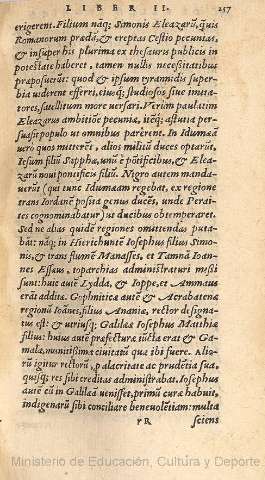 LIBER II. 257
erigerent. Filium náq; Simonis Eleazarũ, quis
Romanorum præda, & ereptas Cestio pecunias,
& insuper his plurima ex thesauris publicis in
potestate haberet, tamen nullis necessitatibus
præposuerũt: quod & ipsum tyrannidis super-
bia uiderent efferri, eiusq; studiosos, siue imita-
tores, satellitum more uersari. Verùm paulatim
Eleazarus ambitióe pecuniæ, itéq; astutia per-
suasit populo ut omnibus parêrent. In Idumæã
uerò quos mitterẽt, alios militũ duces optarũt,
Iesum filiũ Sapphæ, unũ è põtificibus, & Elea-
zarũ noui pontificis filiũ. Nigro autem manda-
uerũt (qui tunc Idumæam regebat, ex regione
trans Iordanẽ positа genus ducẽs, unde Perai-
tes cognominabatur) ut ducibus obtemperaret.
Sed ne alias quidẽ regiones omittendas puta-
bãt: nãq; in Hierichuntẽ Iosephus filius Simo-
nis, & trans flumẽ Manasses, et Tamnã Ioan-
nes Essæus, toparchias administraturi missi
sunt: huic autẽ Lydda, & Ioppe, et Ammaus
erat addita. Gophniticæ autẽ & Acrabatenæ
regionũ Ioãnes, filius Ananiæ, rector designa-
tus est: & utriusq; Galilæa Iosephus Matthiæ
filius: huius autẽ præfecturæ iũcta erat & Ga-
mala, munitissima ciuitatũ quæ ibi fuere. Alio-
rũ igitur rectorũ, p alacritate ac prudẽtia sua,
quisq; res sibi creditas administrabat. Iosephus
autẽ cũ in Galilæã uenisset, primũ curæ habuit,
indigenarũ sibi conciliare beneuolẽtiam: multa
rR sciens
Ministerio de Educación, Cultura y Deporte